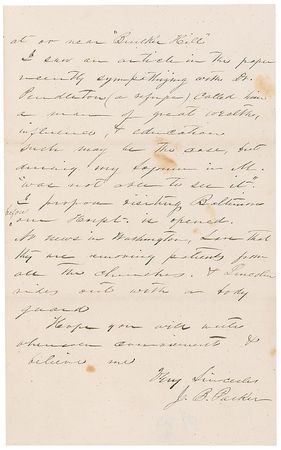 at or near "Bunker Hill"
I saw an article in the paper
recently sympathizing with Dr.
Pendleton (a refugee) called him
a man of great wealth,
influence, & education
Such may be the case, but
during my sojourn in
"was not able to see it".
I propose visiting Baltimore
before
our Hospt. is opened.
No news in Washington, save that
they are removing patients from
all the churches. & Lincoln
rides out with a body
guard
Hope you will write
whenever convenient &
believe me
Very Sincerely
J. B. Parker